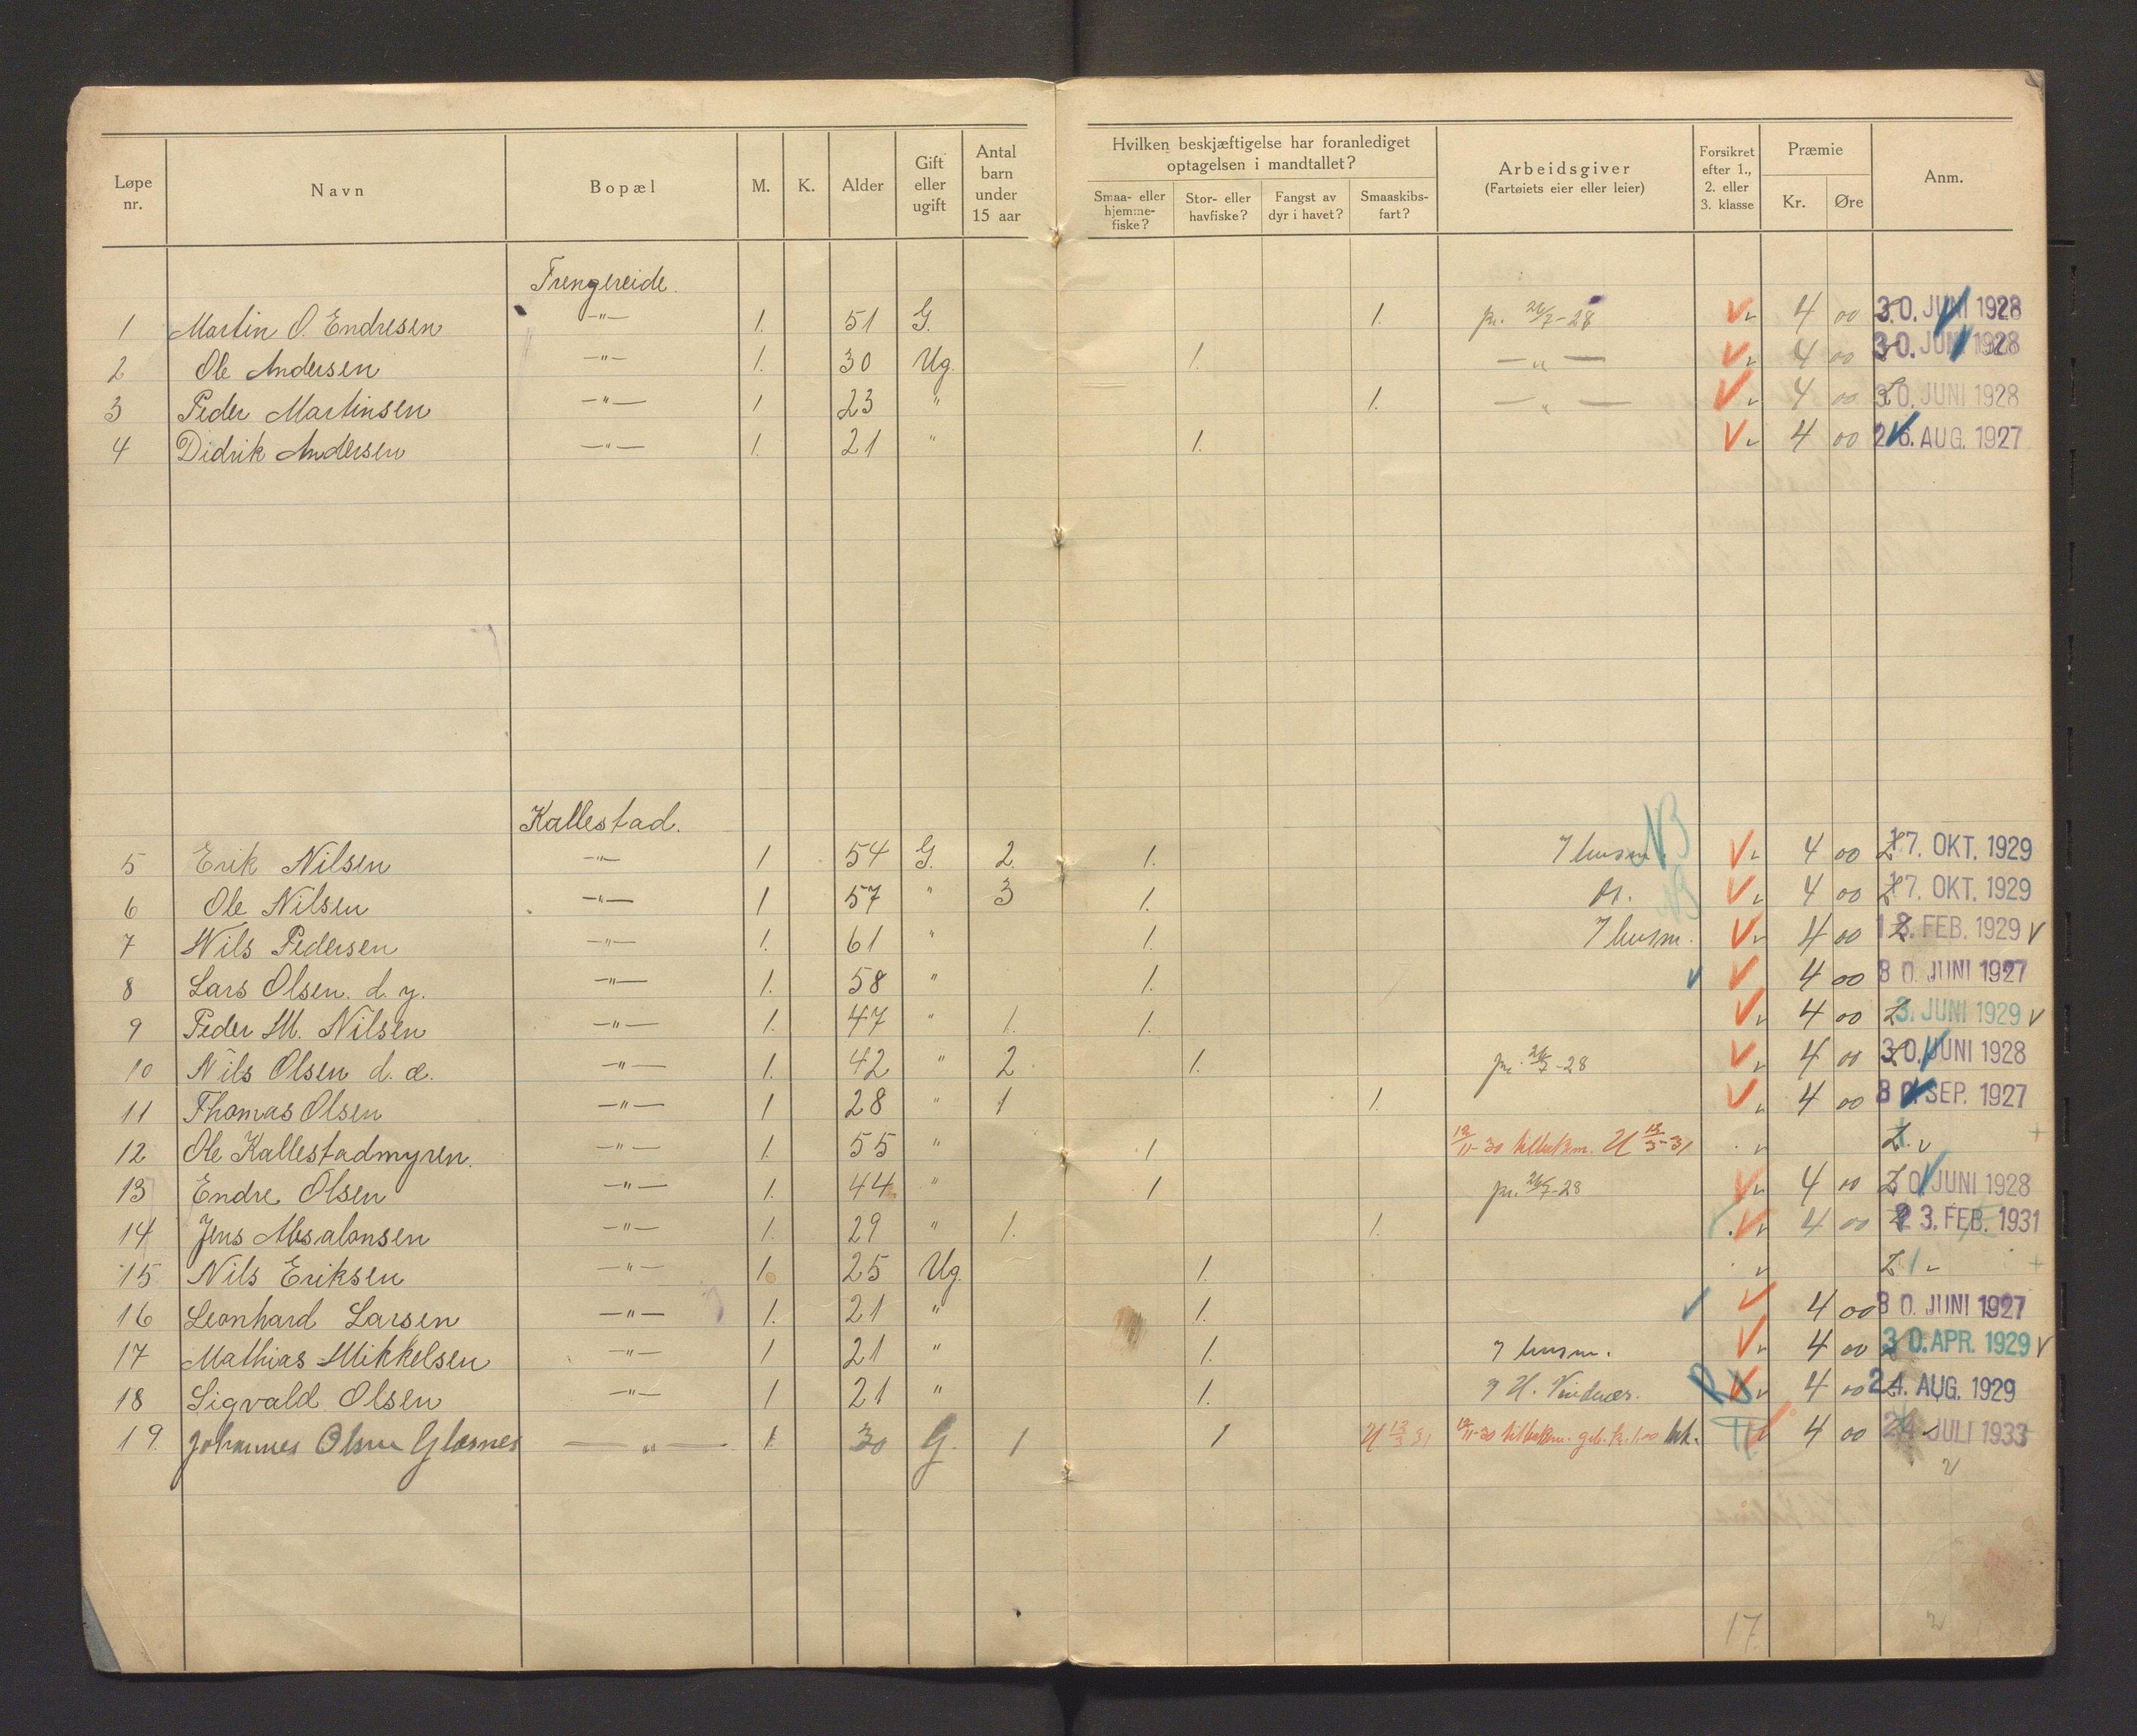 Løpe nr. Navn Bopæl M. K. Alder Gift eller ugift Antal barn under 15 aar Hvilken beskjæftigelse har foranlediget optagelsen i mandtallet? Smaa- eller hjemme-fiske? Stor- eller havfiske? Fangst av dyr i havet? Smaaskibs-fart? Arbeidsgiver (Fartøiets eier eller leier) Forsikret efter 1., 2. eller 3. klasse Præmie Kr. Øre Anm.
Trengereide.
1 Martin O. Endresen —"— 1. 51 G. 1. 4 00 30. JUNI 1928
2 Ole Andersen —"— 1. 30 Ug. 1. —"— 4 00 30. JUNI 1928
3 Peder Martinsen —"— 1 23 " 1. —"— 4 00 30. JUNI 1928
4 Didrik Andersen —"— 1. 21 " 1. 4 00 26. AUG. 1927
Kallestad.
5 Erik Nilsen —"— 1 54 G. 2 1. NB 4 00 17. OKT. 1929
6 Ole Nilsen —"— 1 57 " 3 1. 4 00 17. OKT. 1929
7 Nils Pedersen —"— 1. 61 " 1. 4 00 FEB. 1929 v
8 Lars Olsen. d. y. —"— 1. 58 " 1. 4 00 30. JUNI 1927
9 Peder M. Nilsen —"— 1. 47 " 1. 1. 4 00 3. JUNI 1929 v
10 Nils Olsen d. e. —"— 1. 42 " 2 1. 4 00 30. JUNI 1928
11 Thomas Olsen —"— 1 28 " 1 1. 4 00 30. SEP. 1927
12 Ole Kallestadmyren. —"— 1. 55 " 1
13 Endre Olsen —"— 1. 44. " 1 4 00 30. JUNI 1928
14 Jens Absalonsen —"— 1. 29 " 1. 1. 4 00 23. FEB. 1931
15 Nils Eriksen —"— 1. 25 Ug. 1.
16 Leonhard Larsen —"— 1. 21 " 1. 4 00 30. JUNI 1927
17 Mathias Mikkelsen —"— 1 21 " 1. 4 00 30. APR. 1929 v
18 Sigvald Olsen —"— 1 21 " 1. 4 00 24. AUG. 1929
19. Johannes Olsen Glæsnes —"— 1. 30 G. 1 1 4 00 24. JULI 1933
17